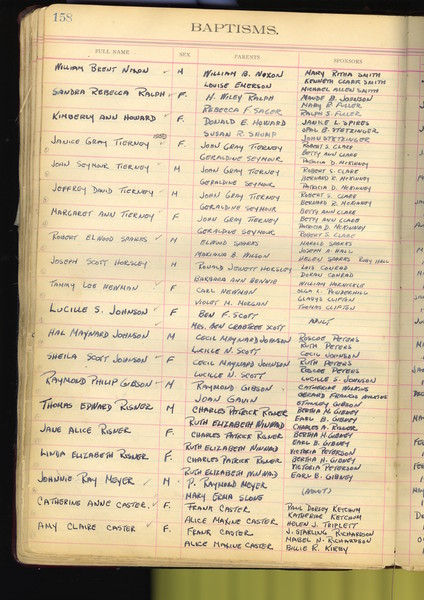 158
BAPTISMS.
FULL NAME SEX PARENTS SPONSORS
William Brent Nixon M William B. Nixon Mary Ritha Smith
Louise Emerson Kenneth Clark Smith
Michael Allen Smith
Sandra Rebecca Ralph F. N. Wiley Ralph Maude B. Johnson
Rebecca F. Sager Mary P. Fuller
Ralph S. Fuller
Kimberly Ann Howard F. Donald E. Howard Janice L. Spires
Susan R. Shump Opal B. Stetzinger
John Stetzinger
Janice Gray Tierney F. John Gray Tierney Robert S. Clare
Geraldine Seymour Betty Ann Clare
Patricia D. McKinney
John Seymour Tierney M John Gray Tierney Robert S. Clare
Geraldine Seymour Bernard R. McKinney
Patricia D. McKinney
Jeffrey David Tierney M John Gray Tierney Robert S. Clare
Geraldine Seymour Bernard R. McKinney
Betty Ann Clare
Margaret Ann Tierney F John Gray Tierney Patricia D. McKinney
Geraldine Seymour Robert S. Clare
Robert Elwood Sparks M Elwood Sparks Harold Sparks
Mariana B. Wilson Joseph A. Hall
Helen Sparks Ray Hall
Joseph Scott Horsley M Ronald Jewett Horsley Lois Conrad
Barbara Ann Doran Conrad
Tammy Lou Newman F Carl Newman William
Violet M. Morgan
Gladys Clifton
Thomas Clifton
Lucille S. Johnson F Ben F. Scott Adult
Mrs. Ben Crabtree Scott
Hal Maynard Johnson M Cecil Maynard Johnson Roscoe Peters
Lucille N. Scott Ruth Peters
Cecil Johnson
Sheila Scott Johnson F Cecil Maynard Johnson Ruth Peters
Lucille N. Scott Roscoe Peters
Lucille S. Johnson
Raymond Philip Gibson M Raymond Gibson Catherine Wilkins
Joan Gavin Gerard Francis Wilkins
Gibson
Thomas Edward Risner M Charles Patrick Risner Bertha M. Gibney
Ruth Elizabeth Winwad Earl B. Gibney
Charles A. Risner
Jane Alice Risner F. Charles Patrick Risner Bertha M Gibney
Ruth Elizabeth Winwad Earl B. Gibney
Victoria Peterson
Linda Elizabeth Risner F. Charles Patrick Risner Bertha M. Gibney
Ruth Elizabeth Winwad Victoria Peterson
Earl B. Gibney
Johnnie Ray Meyer M P. Raymond Meyer (Adult)
Mary Erma Slone
Catherine Anne Caster. F. Frank Caster Paul Dorsey Ketchum
Alice Maxine Caster Katherine Ketchum
Helen J. Triplett
Amy Claire Caster F. Frank Caster J. Starling Richardson
Alice Maxine Caster Mabel N. Richardson
Billie R. Kirby